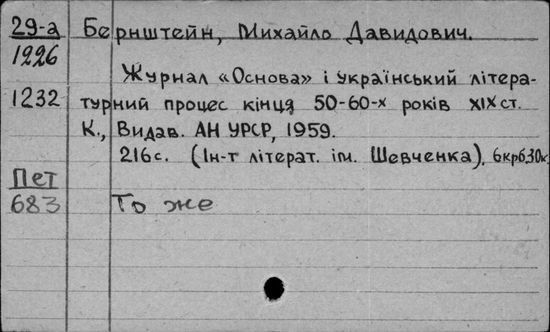 29-а Бернштейн, Михайло Давидович.
1226
Журнал «Основа» і український літера-
1232 турний процес кінця 50-60-х років XIX ст.
К., Видав. АН УРСР, 1959.
216 с. (Ін-т літерат. ім. Шевченка). 6крб.30к.
Пет
683 То же